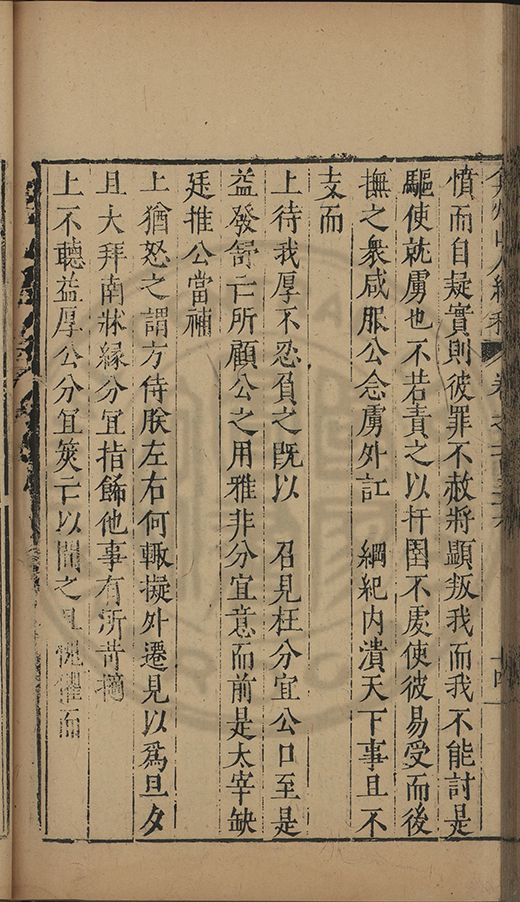 弇州山人續稿 卷之一百三十六 十四
憤而自疑實則彼罪不赦將顯叛我而我不能討是
驅使就虜也不若責之以扞圉不戾使彼易受而後
撫之衆咸服公念虜外訌 綱紀內潰天下事且不
支而
上待我厚不忍負之既以 召見枉分宜公口至是
益發舒亡所顧公之用雅非分宜意而前是太宰缺
廷推公當補
上猶怒之謂方侍朕左右何輙擬外遷見以爲旦夕
且大拜南牀緣分宜指餙他事有所苛摘
上不聽益厚公分宜筴亡以間之且愧懼而